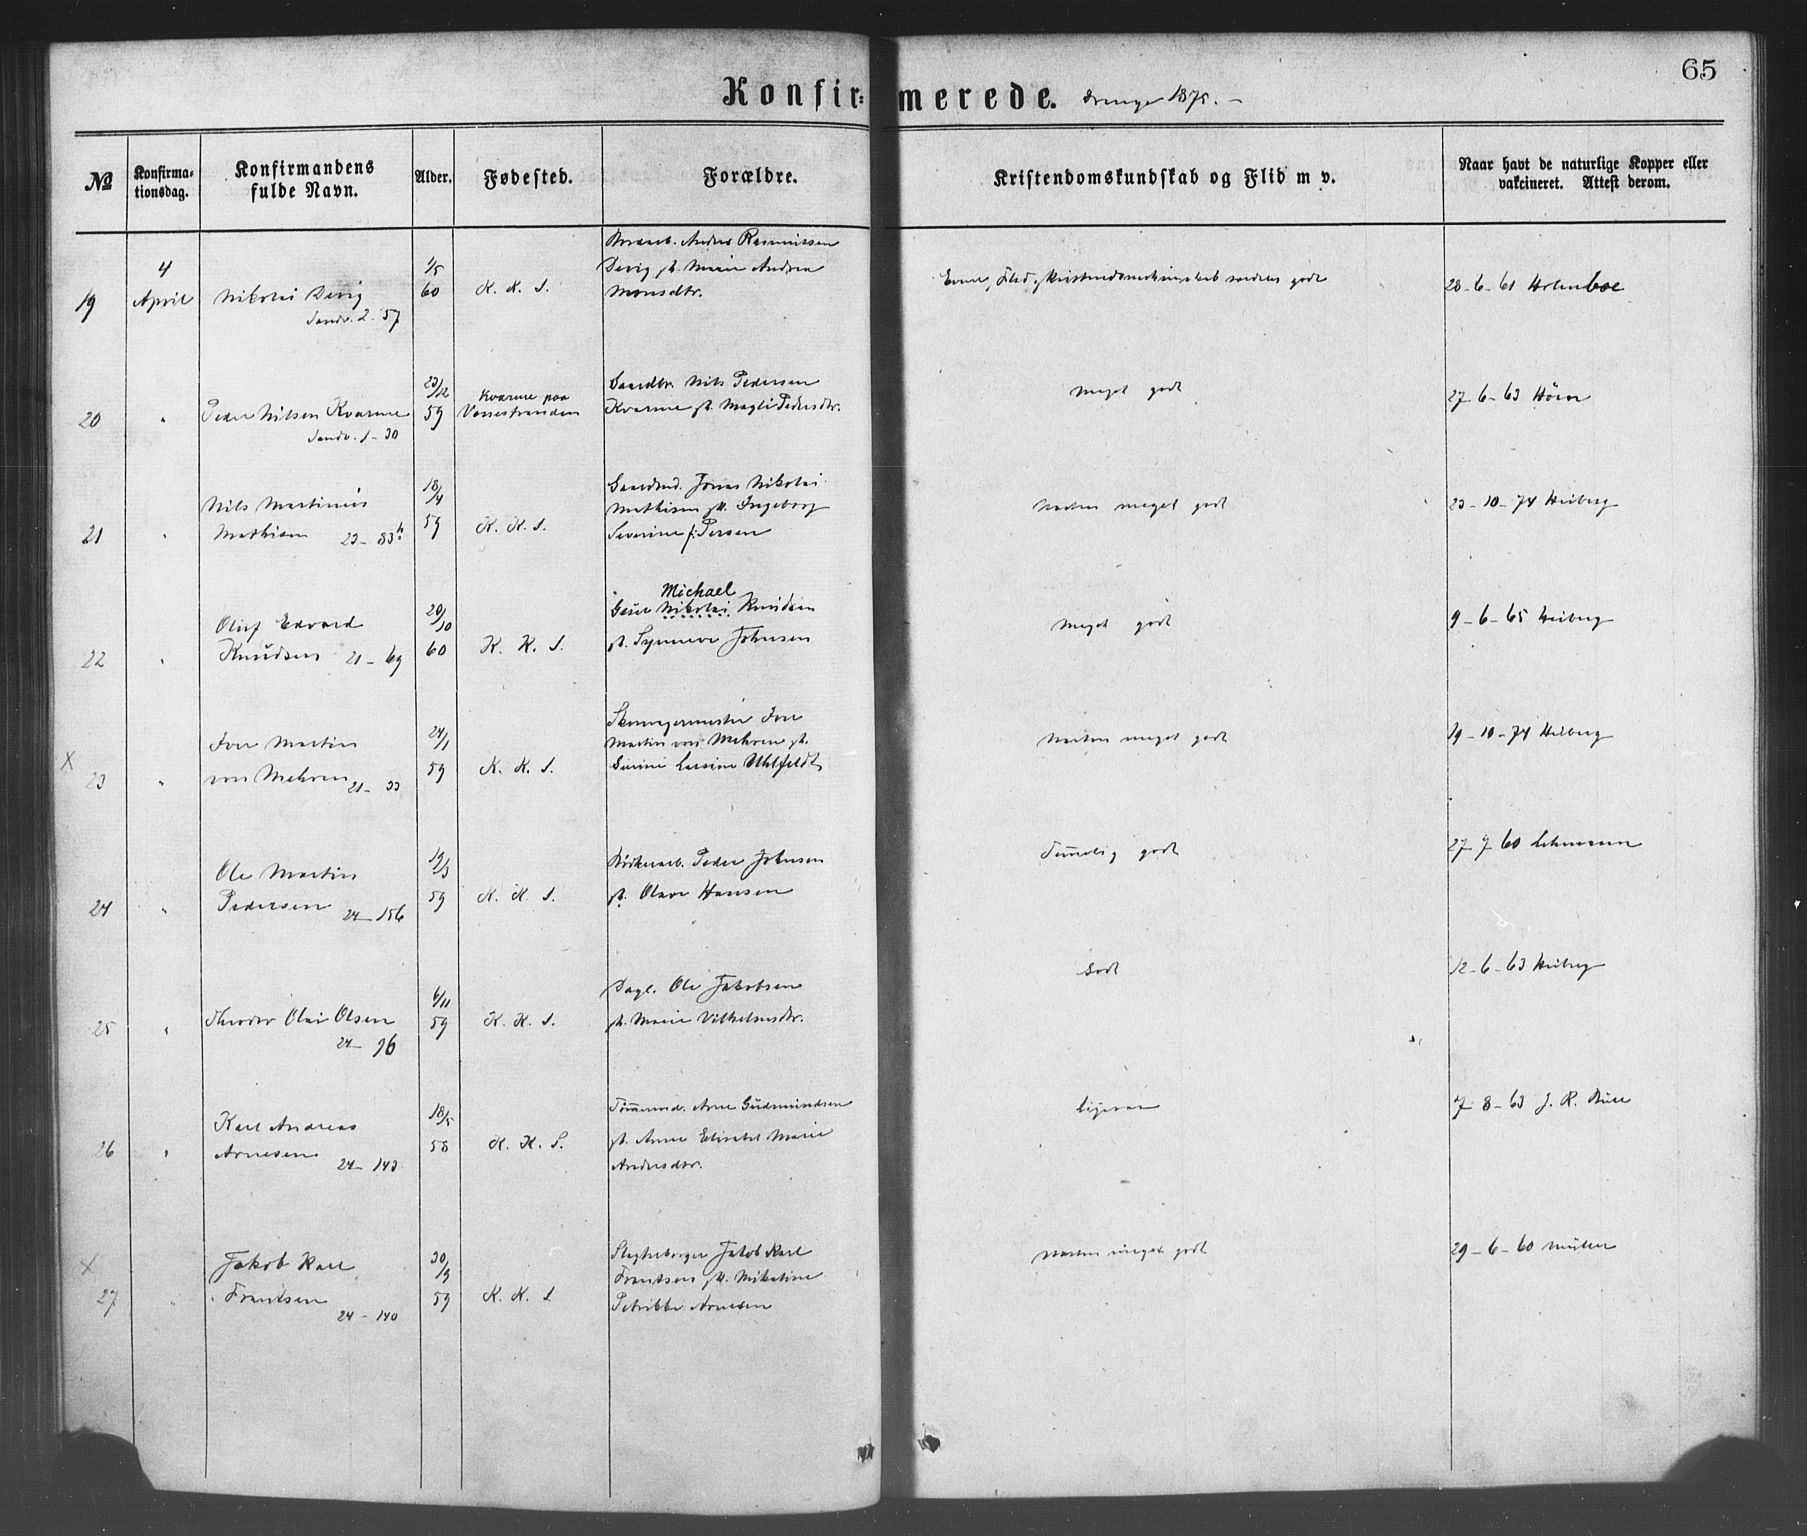 65
Konfir= merede. Drenge 1875. –
№
Konfirma-
tionsdag.
Konfirmandens
fulde Navn.
Alder.
Fødested.
Forældre.
Kristendomskundskab og Flid m v.
Naar havt de naturlige Kopper eller
vakcineret. Attest derom.
19
4
April
Nikolai Devig
Sandv. 2 - 57
1/5
60
K. K. S.
Anders Rasmussen
Devig h. Marie Andrea
Monsdtr.
Evne, Flid og Kristendomskundskab næsten godt
28-6-61 Holmboe
20
"
Peder Nilsen Kvarme
Sandv. 1 - 30
23/12
59
Kvarme paa
Vossestranden
Gaardbr. Nils Pedersen
Kvarme h. Magli Pedersdtr.
Meget godt
27-6-63
21
"
Nils Martinus
Mathisen 23 - 83 b
18/4
59
K. K. S.
Jonas Nikolai
Mathisen h. Ingeborg
Severine f: Persen
Næsten meget godt
23-10-74 Heiberg
22
"
Oluf Edvard
Knudsen 21 - 69
20/10
60
K. K. S.
Michael
Nikolai Knudsen
h. Synneve Johnsen
Meget godt
9-6-65 Heiberg
X
23
"
Iver Martin
von Mehren 21 - 33
24/1
59
K. K. S.
Iver
Martin von Mehren h.
Lovise Uhlfeldt
Næsten meget godt
19-10-74 Heiberg
24
"
Ole Martin
Pedersen 24 - 156
19/3
59
K. K. S.
Bødkerarb. Peder Johnsen
h. Olave Hansen
Temmelig godt
27-7 60 Lehmann
25
"
Theodor Olai Olsen
24 - 96
6/11
59
K. K. S.
Dagl. Ole Jakobsen
h. Marie Vilhelmsdtr.
Godt
12-6-63 Heiberg
26
"
Karl Andreas
Arnesen 24 - 143
18/5
58
K. K. S.
Tømmermd. Arne Gudmundsen
h. Anne Elisabet Marie
Andersdtr.
Ligesaa
7-8-63 J. R. Bull
X
27
"
Jakob Karl
Frantsen 24 - 140
30/9
59
K. K. S.
Jakob Karl
Frantsen h. Nikoline
Petrikke Arnesen
Næsten meget godt
29-6-60 Müller